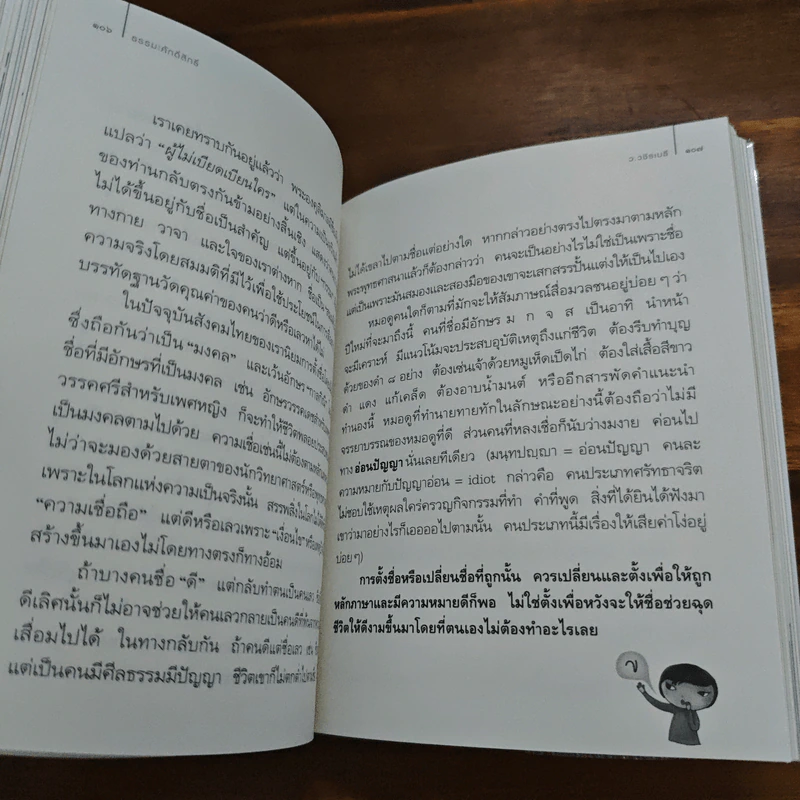 ๑๐๖ ธรรมะศักดิ์สิทธิ์
เราเคยทราบกันอยู่แล้วว่า
แปลว่า “ผู้ไม่เบียดเบียนใคร” แต่ในความเป็น
ของท่านกลับตรงกันข้ามอย่างสิ้นเชิง
ไม่ได้ขึ้นอยู่กับชื่อเป็นสำคัญ แต่ขึ้นอยู่กับ
ทางกาย วาจา และใจของเราต่างหาก
ความจริงโดยสมมติที่มีไว้เพื่อใช้ประโยชน์ใน
บรรทัดฐานวัดคุณค่าของคนว่าดีหรือเลว
ในปัจจุบันสังคมไทยของเรานิยมการตั้งชื่อ
ซึ่งถือกันว่าเป็น “มงคล” และเว้นอักษร
ชื่อที่มีอักษรที่เป็นมงคล เช่น อักษรวรรคเดช
วรรคศรีสำหรับเพศหญิง ก็จะทำให้ชีวิตพลอย
เป็นมงคลตามไปด้วย ความเชื่อเช่นนี้ไม่ต้อง
ไม่ว่าจะมองด้วยสายตาของนักวิทยาศาสตร์หรือ
เพราะในโลกแห่งความเป็นจริงนั้น สรรพสิ่ง
“ความเชื่อถือ” แต่ดีหรือเลวเพราะ “เงื่อนไข”
สร้างขึ้นมาเองไม่โดยทางตรงก็ทางอ้อม
ถ้าบางคนชื่อ “ดี” แต่กลับทำตนเป็นคนเลว
ดีเลิศนั้นก็ไม่อาจช่วยให้คนเลวกลายเป็นคนดี
เสื่อมไปได้ ในทางกลับกัน ถ้าคนดีแต่ชื่อเลว
แต่เป็นคนมีศีลธรรมมีปัญญา ชีวิตเขาก็ไม่ตกต่ำ
ว.วชิรเมธี ๑๐๗
ไม่ได้เขลาไปตามชื่อแต่อย่างใด หากกล่าวอย่างตรงไปตรงมาตามหลัก
พระพุทธศาสนาแล้วก็ต้องกล่าวว่า คนจะเป็นอย่างไรไม่ใช่เป็นเพราะชื่อ
แต่เป็นเพราะมันสมองและสองมือของเขาจะเสกสรรปั้นแต่งให้เป็นไปเอง
หมอดูคนใดก็ตามที่มักจะให้สัมภาษณ์สื่อมวลชนอยู่บ่อยๆ ว่า
ปีใหม่ที่จะมาถึงนี้ คนที่ชื่อมีอักษร ม ก จ ส เป็นอาทิ นำหน้า
จะมีเคราะห์ มีแนวโน้มจะประสบอุบัติเหตุถึงแก่ชีวิต ต้องรีบทำบุญ
ด้วยของดำ ๘ อย่าง ต้องเซ่นเจ้าด้วยหมูเห็ดเป็ดไก่ ต้องใส่เสื้อสีขาว
ดำ แดง แก้เคล็ด ต้องอาบน้ำมนต์ หรืออีกสารพัดคำแนะนำ
ทำนองนี้ หมอดูที่ทำนายทายทักในลักษณะอย่างนี้ต้องถือว่าไม่มี
จรรยาบรรณของหมอดูที่ดี ส่วนคนที่หลงเชื่อก็นับว่างมงาย ค่อนไป
ทาง อ่อนปัญญา นั่นเลยทีเดียว (มนฺทปญฺญา = อ่อนปัญญา คนละ
ความหมายกับปัญญาอ่อน = idiot กล่าวคือ คนประเภทศรัทธาจริต
ไม่ชอบใช้เหตุผลใคร่ครวญกิจกรรมที่ทำ คำที่พูด สิ่งที่ได้ยินได้ฟังมา
เขาว่ามาอย่างไรก็เออออไปตามนั้น คนประเภทนี้มีเรื่องให้เสียค่าโง่อยู่
บ่อยๆ)
การตั้งชื่อหรือเปลี่ยนชื่อที่ถูกนั้น ควรเปลี่ยนและตั้งเพื่อให้ถูก
หลักภาษาและมีความหมายดีก็พอ ไม่ใช่ตั้งเพื่อหวังจะให้ชื่อช่วยฉุด
ชีวิตให้ดีงามขึ้นมาโดยที่ตนเองไม่ต้องทำอะไรเลย